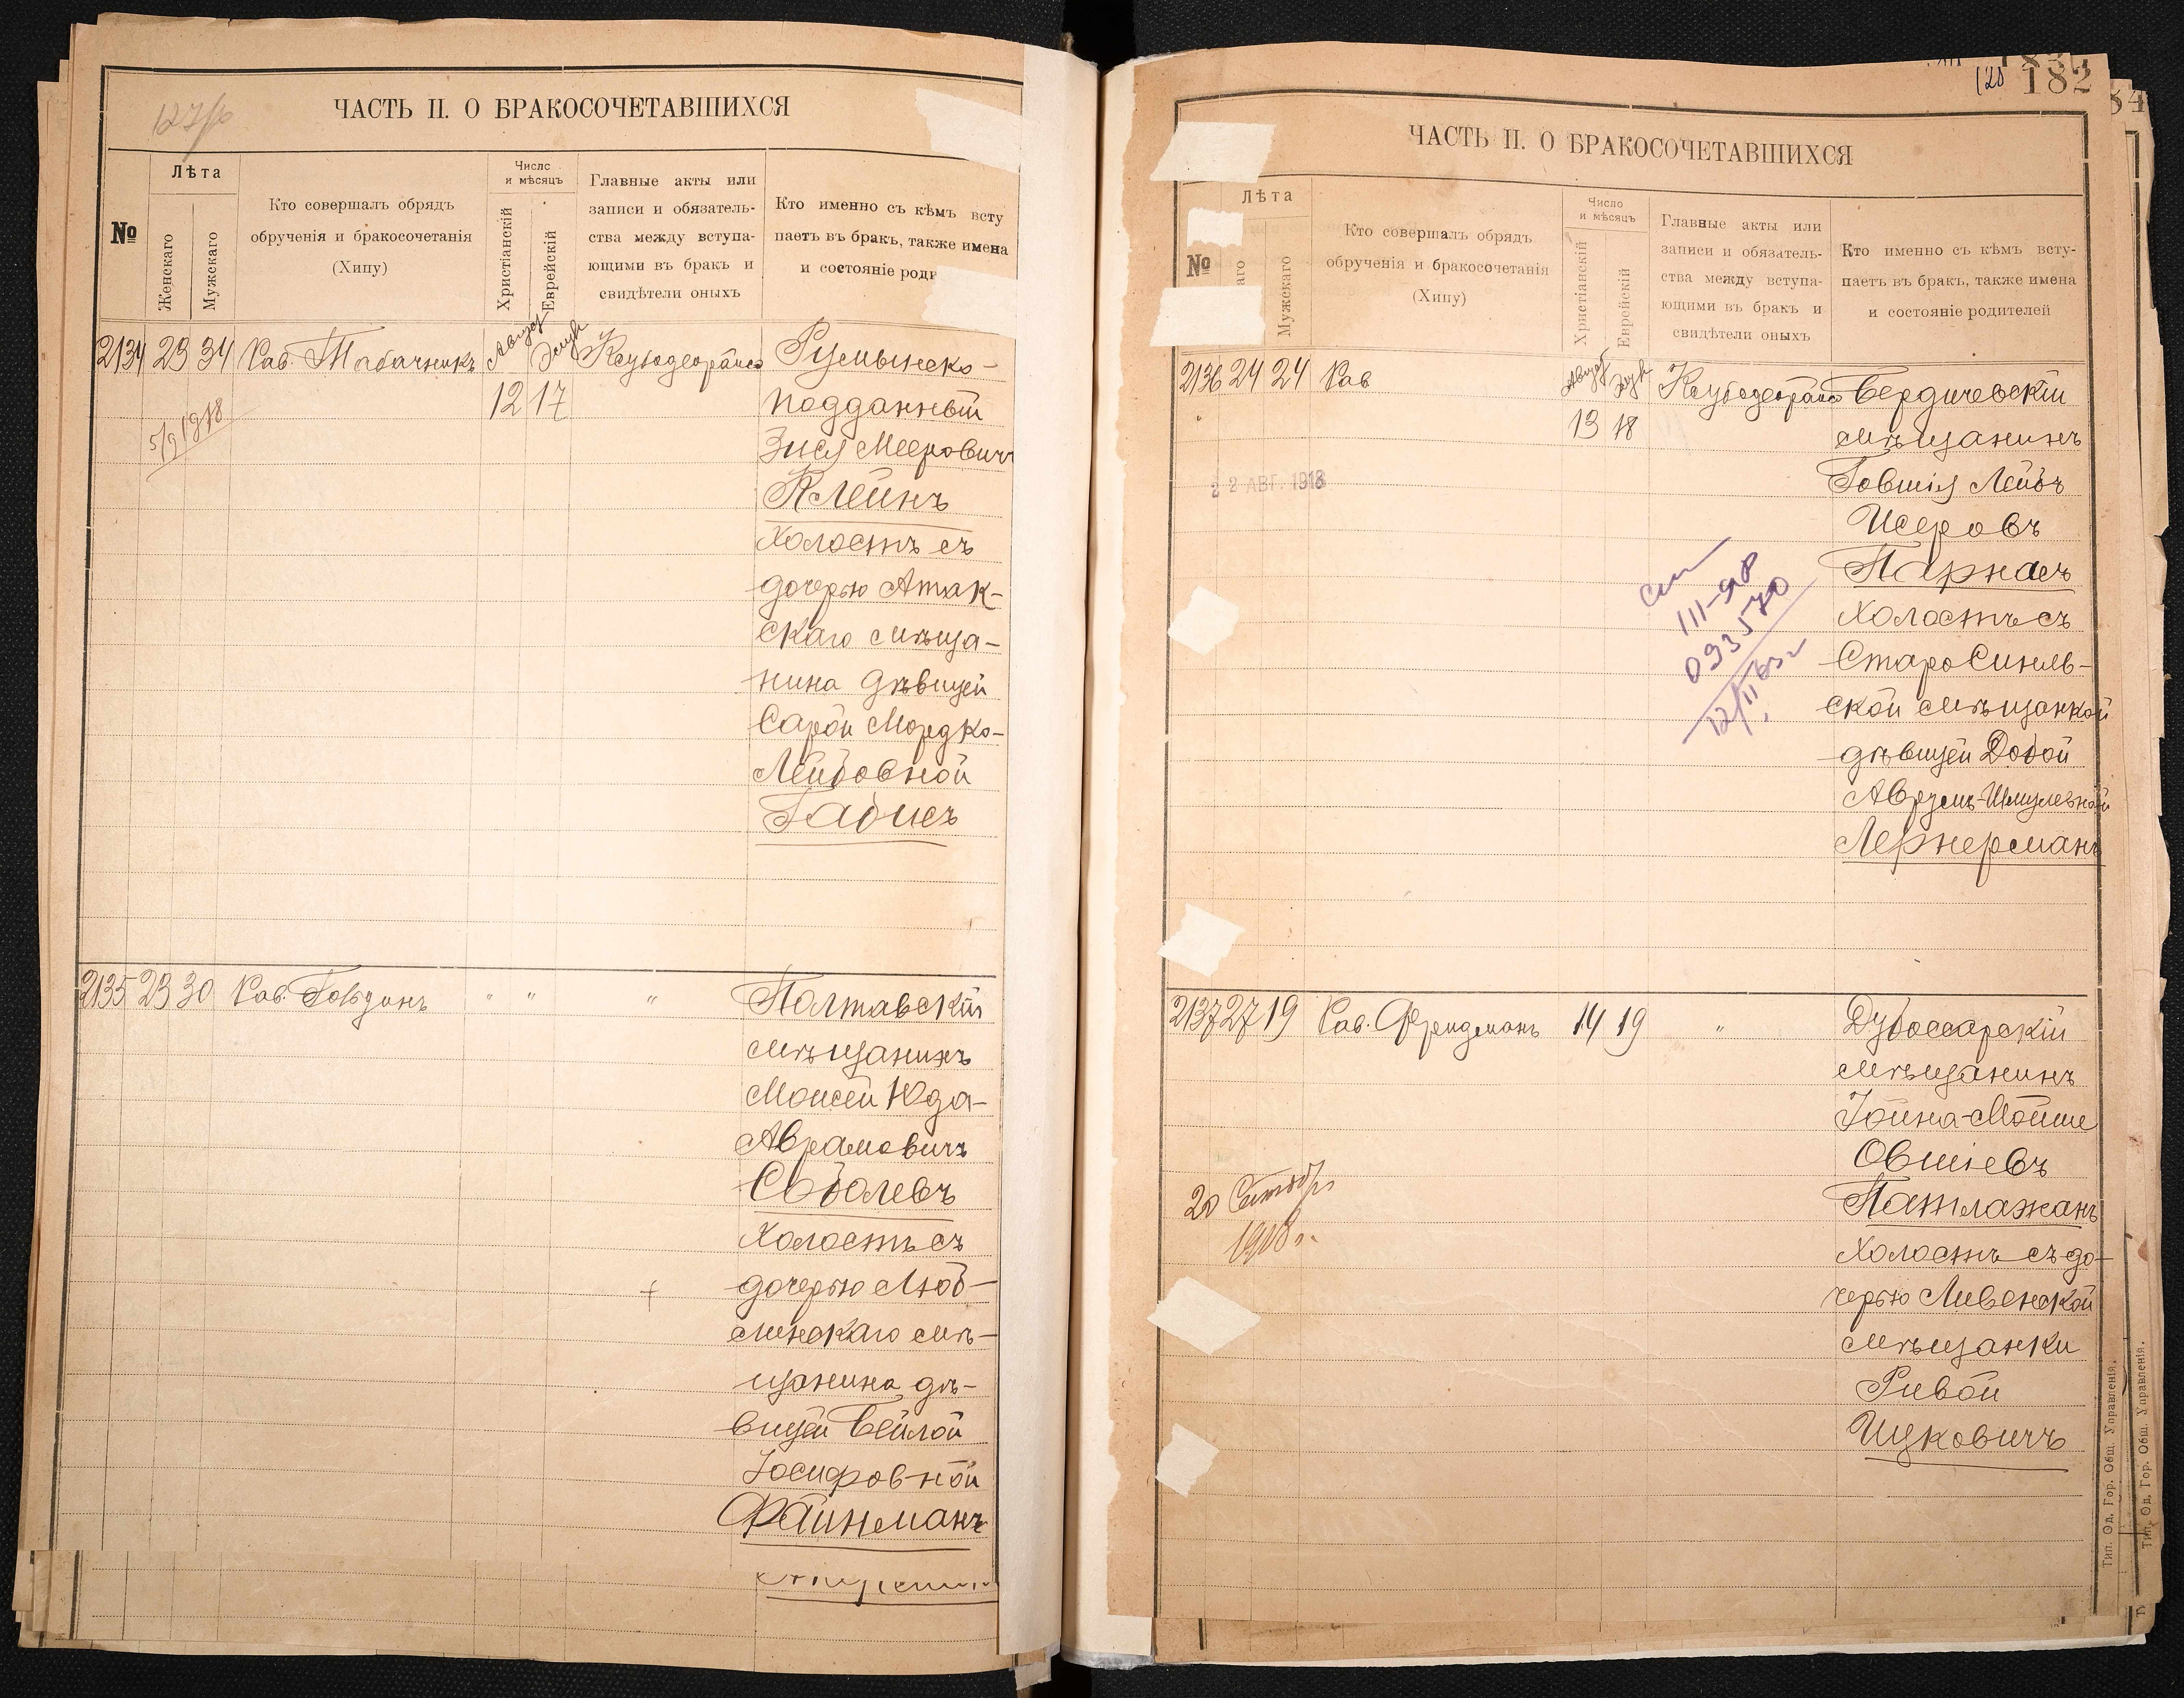 127/6
ЧАСТЬ II. О БРАКОСОЧЕТАВШИХСЯ
№
Лѣта
Женскаго
Мужскаго
Кто совершалъ обрядъ
обрученія и бракосочетанія
(Хипу)
Число
и мѣсяцъ
Христіанскій
Еврейскій
Главные акты или
записи и обязатель-
ства между вступа-
ющими въ бракъ и
свидѣтели оныхъ
Кто именно съ кѣмъ всту
паетъ въ бракъ, также имена
и состояніе роди
2134 23 34 Рав. Табачникъ Август Элуль
12 17
5/9 1918
Румынско-
подданный
Зися Мееровичъ
Клейнъ
холостъ съ
дочерью Атак-
скаго мѣща-
нина дѣвицей
Сарой Мордко-
Лейбовной
Габисъ
2135 23 30 Рав. Говдинъ " " "
Полтавскій
мѣщанинъ
Моисей Юда-
Абрамовичъ
Соболевъ
холостъ съ
дочерью Люб-
линскаго мѣ-
щанина дѣ-
вицей Бейлой
Іосифовной
Файнманъ
182
120
ЧАСТЬ II. О БРАКОСОЧЕТАВШИХСЯ
№
Лѣта
аго
Мужскаго
Кто совершалъ обрядъ
обрученія и бракосочетанія
(Хипу)
Число
и мѣсяцъ
Христіанскій
Еврейскій
Главные акты или
записи и обязатель-
ства между вступа-
ющими въ бракъ и
свидѣтели оныхъ
Кто именно съ кѣмъ всту-
паетъ въ бракъ, также имена
и состояніе родителей
2136 24 24 Рав Август Элул
13 18
22 АВГ. 1918
III-ЯР
093570
12/II 63г
Бердичевскій
мѣщанинъ
Іовшія Лейбъ
Исеровъ
Парнасъ
холостъ съ
СтароСиняв-
ской мѣщанкой
дѣвицей Добой
Аврумъ-Шмулевной
Лернерманъ
2137 27 19 Рав. Фридманъ 14 19 "
20 Сентября
1918 г.
Дубоссарскій
мѣщанинъ
Іойна-Мойше
Овшіевъ
Патлажанъ
холостъ съ до-
черью Ливенской
мѣщанки
Ривой
Ицковичъ
Тип. Од. Гор. Общ. Управленія.
Тип. Од. Гор. Общ. Управленія.